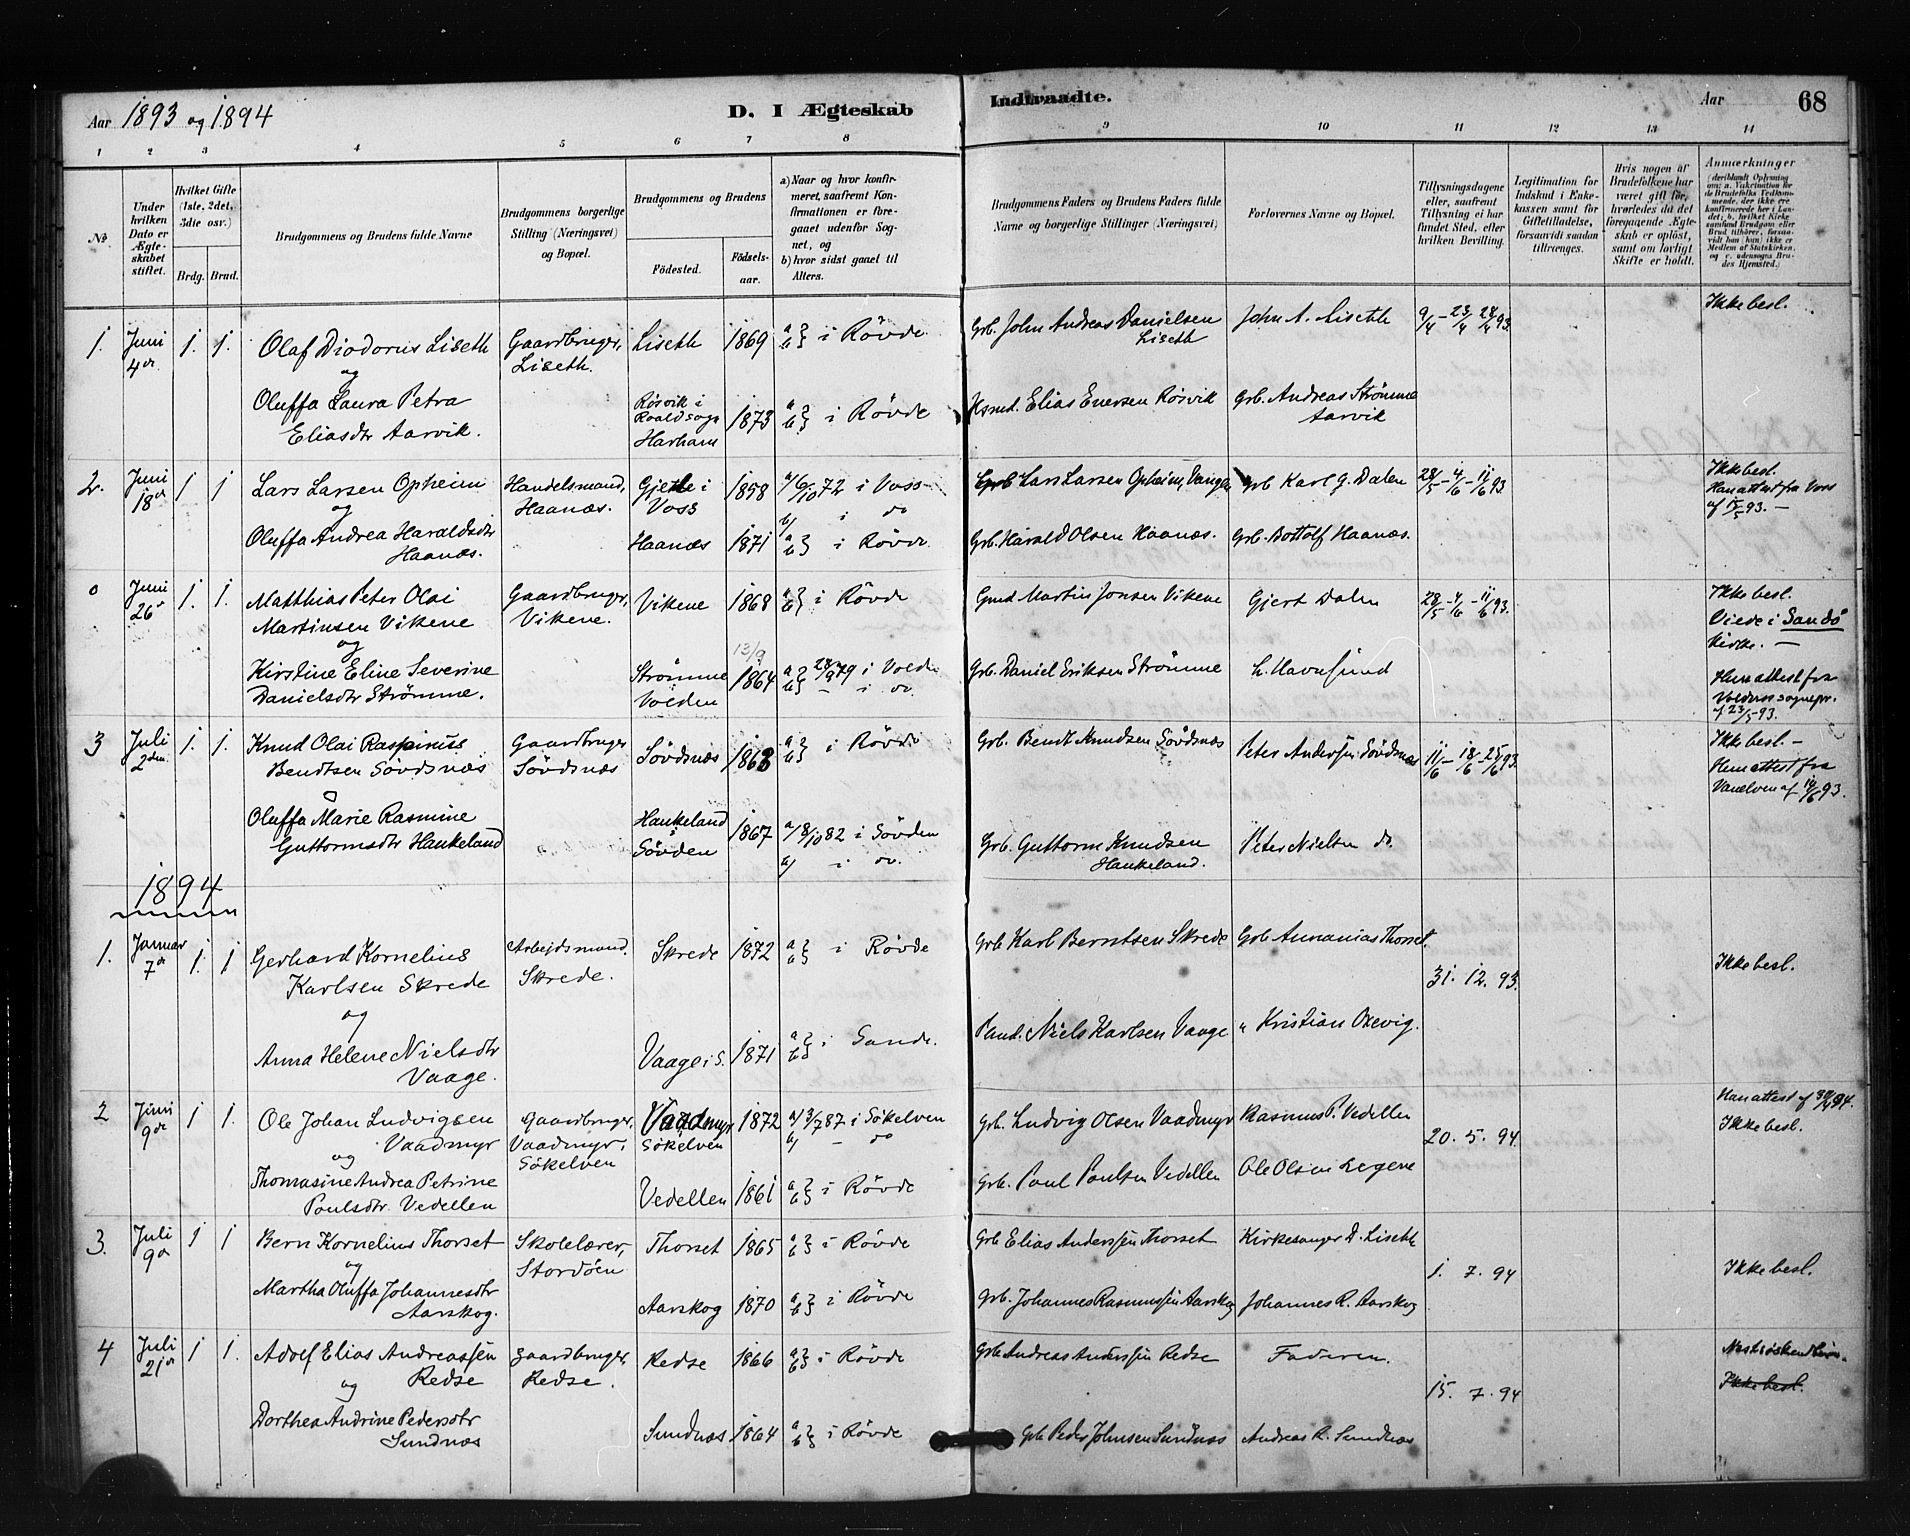 Aar 1893 og 1894
D. I Ægteskab Indtraadte.
Aar 68
1 2 3 4 5 6 7 8 9 10 11 12 13 14
No.
Under hvilken Dato er Ægteskabet stiftet.
Hvilket Gifte (1ste, 2det, 3die osv.)
Brdg. Brud.
Brudgommens og Brudens fulde Navne
Brudgommens borgerlige Stilling (Næringsvei) og Bopæl.
Brudgommens og Brudens
Fødested.
Fødsels-aar.
a) Naar og hvor konfirmeret, saafremt Konfirmationen er foregaaet udenfor Sognet, og
b) hvor sidst gaaet til Alters.
Brudgommens Faders og Brudens Faders fulde Navne og borgerlige Stillinger (Næringsvei)
Forlovernes Navne og Bopæl.
Tillysningsdagene eller, saafremt Tillysning ei har fundet Sted, efter hvilken Bevilling.
Legitimation for Indskud i Enkekassen samt for Giftetilladelse, forsaavidt saadan tiltrænges.
Hvis nogen af Brudefolkene har været gift før, hvorledes da det foregaaende Ægteskab er opløst, samt om lovligt Skifte er holdt.
Anmærkninger
1. Juni 4de 1. 1. Olaf Diodorus Liseth Gaardbruger, Liseth. Liseth 1869 a b} i Rövde Grb. John Andreas Danielsen Liseth John A. Liseth 9/4 - 23/4 Ikke besl.
og
Oluffa Laura Petra Eliasdtr Aarvik. Rösvik i Roaldsogn Harham 1873 a b} i Rövde Elias Enersen Rösvik Grb. Andreas Strömme Aarvik
2. Juni 18de 1 1 Lars Larsen Opheim Handelsmand, Haanæs. Gjelle i Voss 1858 a/ 6/10 72 i Voss b/ i do Grb Lars Larsen Opheim, Vangen Grb Karl G. Dalen 28/5 - 4/6 - 11/6 93 Ikke besl. Han attest fra Voss
og
Oluffa Andrea Haraldsdtr Haanæs. Haanæs 1871 a b} i Rövde. Grb. Harald Olsen Haanæs. Grb. Bottolf Haanæs.
0 Juni 26 1. 1. Matthias Peter Olai Martinsen Vikene Gaardbruger, Vikene. Vikene 1868 a b} i Rövde Gmd Martin Jonsen Vikene Gjert Dalen 28/5 - 4/6 - 11/6 93. Ikke besl. Viede i Sandö Kirke. -
og
Kirstine Eline Severine Danielsdtr Strömme. Strömme Volden 13/9 1864 a b} 28/9 79 i Volden - i do. Grb. Daniel Eriksen Strömme L. Havnsund Hun attest fra Voldens sognepr. af 23/5 93.
3 Juli 2den. 1. 1. Knud Olai Rasmus Bendtsen Sövdsnæs Gaardbruger Sövdsnæs Sövdsnæs 1868 a b} i Rövde Grb. Bendt Knudsen Sövdsnæs Peter Andersen Sövdsnæs 11/6 - 18/6 - 25/6 93. Ikke besl. - Hun attest fra Vanelven
Oluffa Marie Rasmine Guttormsdtr Haukeland Haukeland i Sövden 1867 a/ 8/10 82 i Sövden b/ i do. Grb. Guttorm Knudsen Haukeland. Peter Nielsen do.
1894
1. Januar 7de 1. 1 Gerhard Kornelius Karlsen Skrede Arbeidsmand. Skrede. Skrede 1872 a b} i Rövde Grb Karl Berntsen Skrede Grb Annanias Thorset. 31. 12. 93. Ikke besl.
og
Anna Helene Nielsdtr Vaage. Vaage i S. 1871 a b} i Sande. Niels Karlsen Vaage " Kristian Oxevig.
2 Juni 9de 1 1. Ole Johan Ludvigsen Vaadmyr Gaardbruger, Vaadmyr, Sökelven Vaadmyr Sökelven 1872 a/ 3/7 87 i Sökelven b/ - do Grb. Ludvig Olsen Vaadmyr Rasmus P. Vedellen 20. 5. 94. Han attest Ikke besl.
og
Thomasine Andrea Petrine Poulsdtr. Vedellen Vedellen 1861 a b} i Rövde Grb. Poul Poulsen Vedellen Ole Olsen
3. Juli 9de 1 1 Bern Kornelius Thorset Skolelærer, Stordöen Thorset 1865 a b} i Rövde Grb Elias Anderssen Thorset Kirkesanger D. Liseth 1. 7. 94 Ikke besl.
og
Martha Oluffa Johannesdtr Aarskog. Aarskog 1870 a b} i Rövde Grb. Johannes Rasmussen Aarskog Johannes R. Aarskog
4 Juli 21de 1 1. Adolf Elias Andreassen Redse Gaardbruger, Redse. Redse 1866 a b} i Rövde Grb Andreas Anderssen Redse Faderen. 15. 7. 94 Ikke besl.
og
Dorthea Andrine Pedersdtr Sundnæs Sundnæs 1864 a b} i Rövde Grb Peder Johnsen Sundnæs Andreas R. Sundnæs